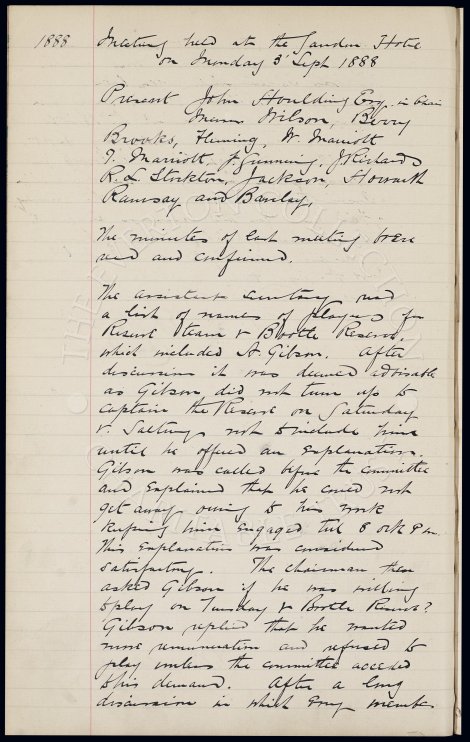 1888
Meeting held at the Sandon Hotel
on Monday 3 Sept 1888
Present John Houlding Esq. in Chair
Messrs Wilson, Berry
Brooks, Fleming, W. Marriott
T. Marriott, A Gunning, J Richards
R. L Stockton, Jackson, Howarth
Ramsay and Barclay,
The minutes of last meeting were
read and confirmed.
The assistant secretary read
a list of names of players for
Reserve team v Bootle Reserve,
which included A. Gibson. After
discussion it was deemed advisable
as Gibson did not turn up to
captain the Reserve on Saturday
v. Saltney not to include him
until he offered an explanation.
Gibson was called before the committee
and explained that he could not
get away owing to his work
keeping him engaged till 8 P m.
This explanation was considered
satisfactory. The chairman then
asked Gibson if he was willing
to play on Tuesday v Bootle Reserve?
Gibson replied that he wanted
more remuneration and refused to
play unless the committee acceded
to his demand. After a long
discussion in which every member
THE EVERTON COLLECTION